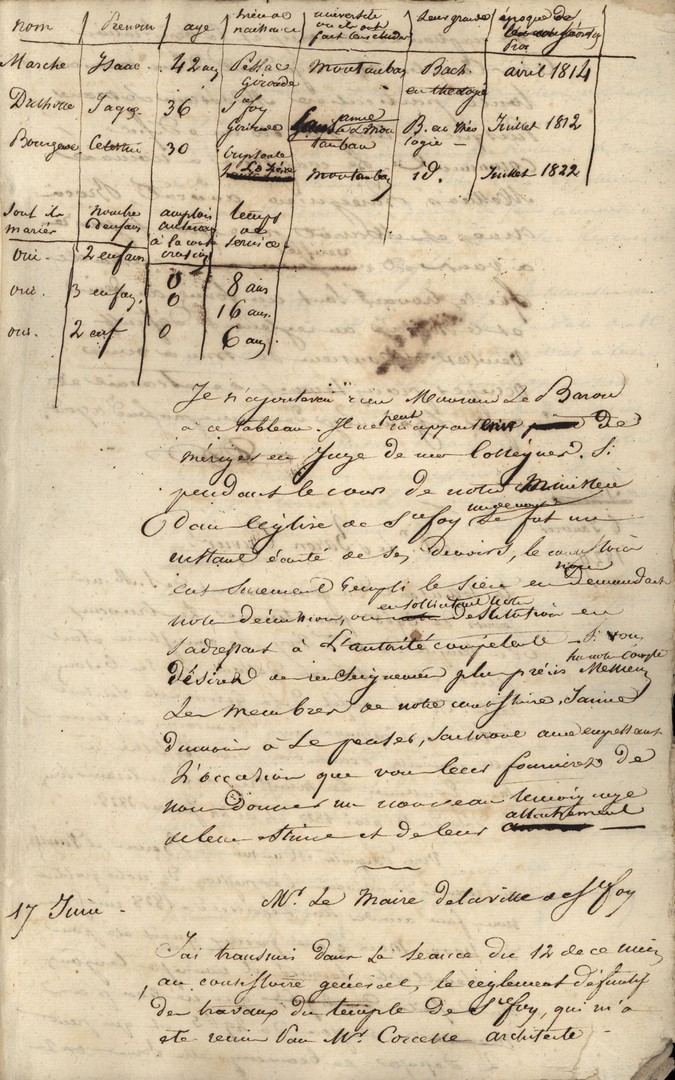 nom Prenom age lieu de naissance université ou ils ont fait leurs études leurs grades époque de
Marche Isaac 42 ans Pessac Gironde Montauban Bach en théologie avril 1814
Jaque 36 Ste foy Gironde Montauban B. en théologie Juillet 1812
30 Lozère Montauban id. Juillet 1822
Sont ils mariés nombre d'enfans emplois à la temps de service
oui. 2 enfans 0 8 ans
oui. 3 enfans. 0 16 ans.
oui. 2 enf 0 6 ans
Je n'ajouterai rien Monsieur Le Baron
à ce tableau. Il ne peut m'appartenir de
m'ériger en Juge de mes Collègues. Si
pendant le cours de notre Ministère
dans l'Eglise de Ste foy l'un de nous se fut un
instant écarté de ses devoirs, le consistoire
eut surement rempli le sien en demandant
notre démission, ou en sollicitant notre destitution en
s'adressant à L'autorité compétente. Si vous
désirez de renseignemens plus précis sur notre compte Messieurs
Les membres de notre consistoire, J'aime
du moins à Le penser, saisiront avec empressement
L'occasion que vous leur fournirez de
nous donner un nouveau témoignage
de leur estime et de leur attachement
17 Juin. Mr. Le Maire de la ville de Ste foy
J'ai transmis dans La séance du 12 de ce mois
au consistoire général, le règlement définitif
des travaux du temple de Ste foy, qui m'a
été remis par Mr. architecte